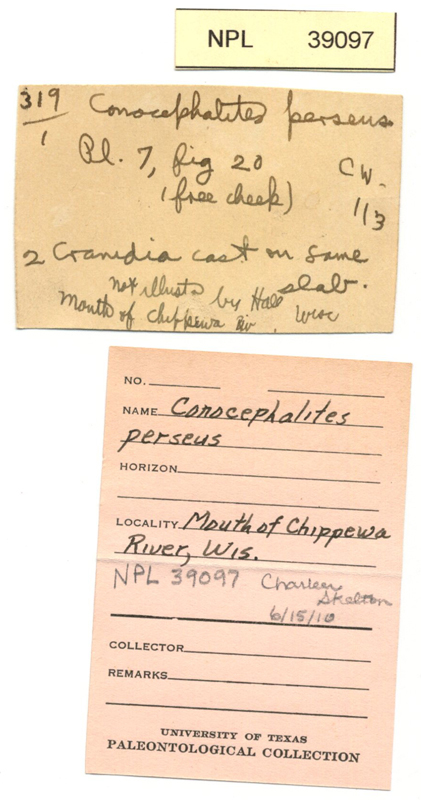 NPL 39097
319
1
Conocephalites perseus
Pl. 7, fig 20
(free cheek)
CW.
113
2 Cranidia cast on same
slab.
not illust. by Hall
Mouth of Chippewa Riv. Wisc
NO.
NAME Conocephalites
perseus
HORIZON
LOCALITY Mouth of Chippewa
River, Wis.
NPL 39097 Charleen
Skelton
6/15/10
COLLECTOR
REMARKS
UNIVERSITY OF TEXAS
PALEONTOLOGICAL COLLECTION